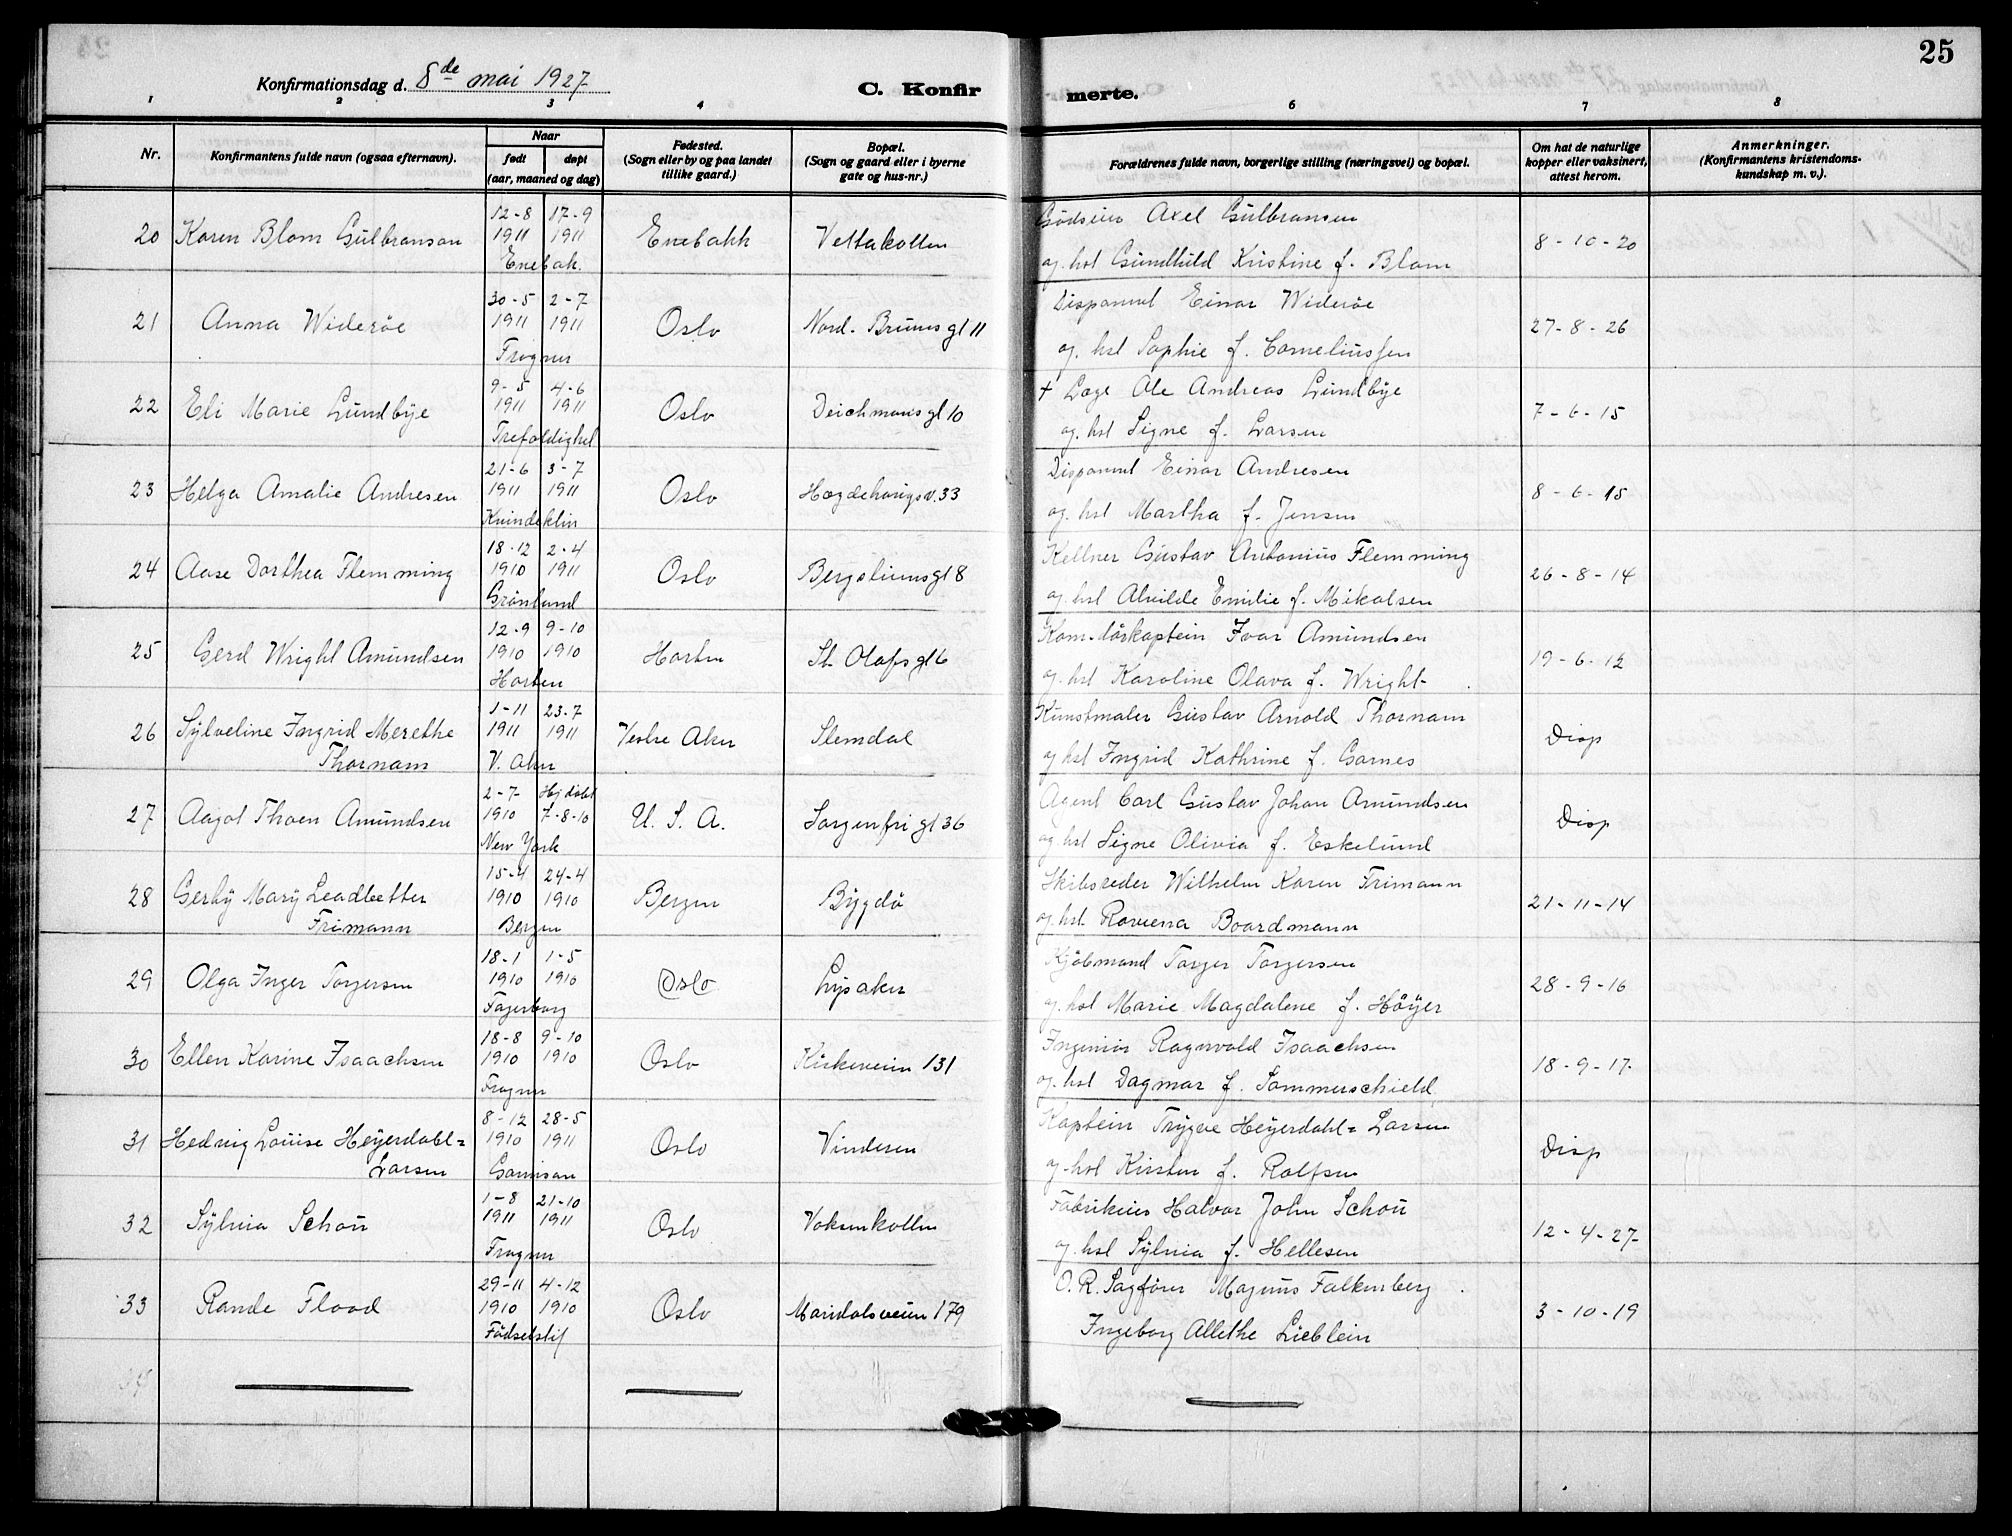 25
Konfirmationsdag d. 8de mai 1927
C. Konfir merte.
1 2 3 4 6 7 8
Nr.
Konfirmantens fulde navn (ogsaa efternavn).
Naar
født døpt
(aar, maaned og dag)
Fødested.
(Sogn eller by og paa landet
tillike gaard.)
Bopæl.
(Sogn og gaard eller i byerne
gate og hus-nr.)
Forældrenes fulde navn, borgerlige stilling (næringsvei) og bopæl.
Om hat de naturlige
kopper eller vaksinert,
attest herom.
Anmerkninger.
(Konfirmantens kristendoms-
kundskap m. v.).
20 Karen Blom Gulbranson 12-8 1911 17-9 1911 Enebakk Vettakollen Axel Gulbransen 8-10-20
Enebak. og hst Gundhild Kristine f. Blom
21 Anna Widerøe 30-5 1911 2-7 1911 Oslo Nord. Bruns gt 11 Disponent Einar Widerøe 27-8-26
Frogner og hst Sophie f. Corneliussen
22 Eli Marie Lundbye 9-5 1911 4-6 1911 Oslo Deichmans gt 10 + Læge Ole Andreas Lundbye 7-6-15
Trefoldighet og hst Signe f. Larsen
23 Helga Amalie Andresen 21-6 1911 3-7 1911 Oslo Hægdehaugsv. 33 Disponent Einar Andresen 8-6-15
og hst Martha f. Jensen
24 Aase Dorthea Flemming 18-12 1910 2-4 1911 Oslo Bergsliensgt 8 Kellner Gustav Antonius Flemming 26-8-14
Grønland og hst Alvilde Emilie f. Mikalsen
25 Gerd Wright Amundsen 12-9 1910 9-10 1910 Horten St. Olafs gt 6 Kom-dörkaptein Ivar Amundsen 19-6-12
Horten og hst Karoline Olava f. Wright
26 Sylveline Ingrid Merethe 1-11 1911 23-7 1911 Vestre Aker Slemdal Kunstmaler Gustav Arnold Thornam Disp
Thornam V. Aker og hst Ingrid Kathrine f. Garnes
27 Aagot Thoen Amundsen 2-7- 1910 Hj døbt 7-8-10 U. S. A. Sorgenfri gt 36 Agent Carl Gustav Johan Amundsen Disp
New York og hst Signe Olivia f. Eskelund
28 Gerby Mary Leadbetter 15-4 1910 24-4 1910 Bergen Bygdö Skibsreder Wilhelm Karen Frimann 21-11-14
Frimann Bergen og hst Roviena Boardmann
29 Olga Inger Torgersen 18-1 1910 1-5 1910 Oslo Lysaker Kjöbmand Torger Torgersen 28-9-16
Fagerborg og hst Marie Magdalene f. Höyer
30 Ellen Karine Isaachsen 18-8 1910 9-10 1910 Oslo Kirkeveien 131 Ingeniör Ragnvald Isaachsen 18-9-17-
Frogner og hst Dagmar f. Sommerschield
31 Hedvig Louise Heyerdahl= 8-12 1910 28-5 1911 Oslo Vinderen Kaptein Trygve Heyerdahl= Larsen Disp
Larsen Garnison og hst Kirsten f. Rolfsen
32 Sylvia Schou 1-8 1911 21-10 1911 Oslo Voksenkollen Fabrikeier Halvor John Schou 12-4-27-
Frogner og hst Sylvia f. Hellesen
33 Rande Flood 29-11 1910 4-12 1910 Oslo Maridalsveien 179 O. R. Sagfører Magnus Falkenberg 3-10-19
Fødselstif Ingeborg Allethe Lieblein
34